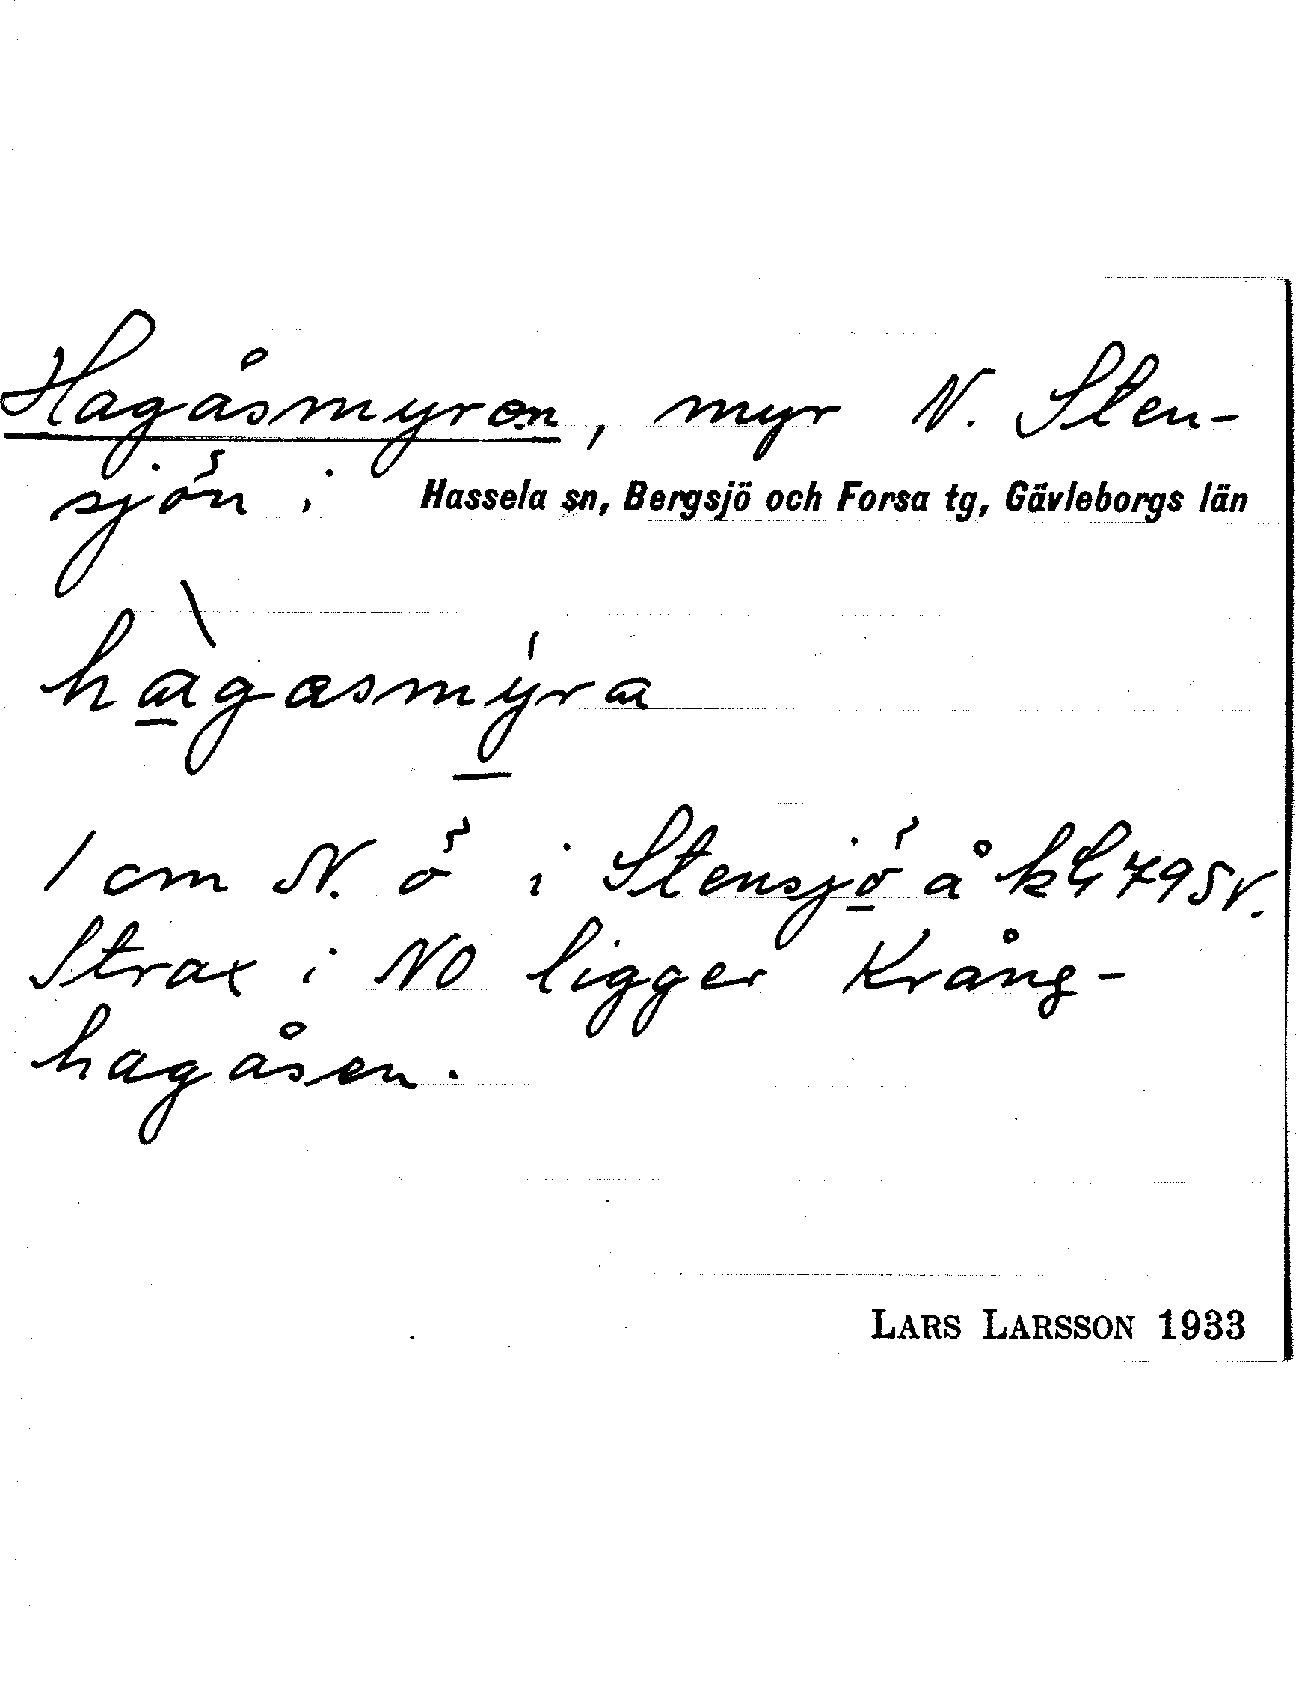 Hagåsmyren, myr N. Sten-
sjön i Hassela sn, Bergsjö och Forsa tg, Gävleborgs län
hàgasmýra
1 cm N. ö i Stensjö å kbl 795 V.
Strax i NO ligger Krång-
hagåsen.
LARS LARSSON 1933